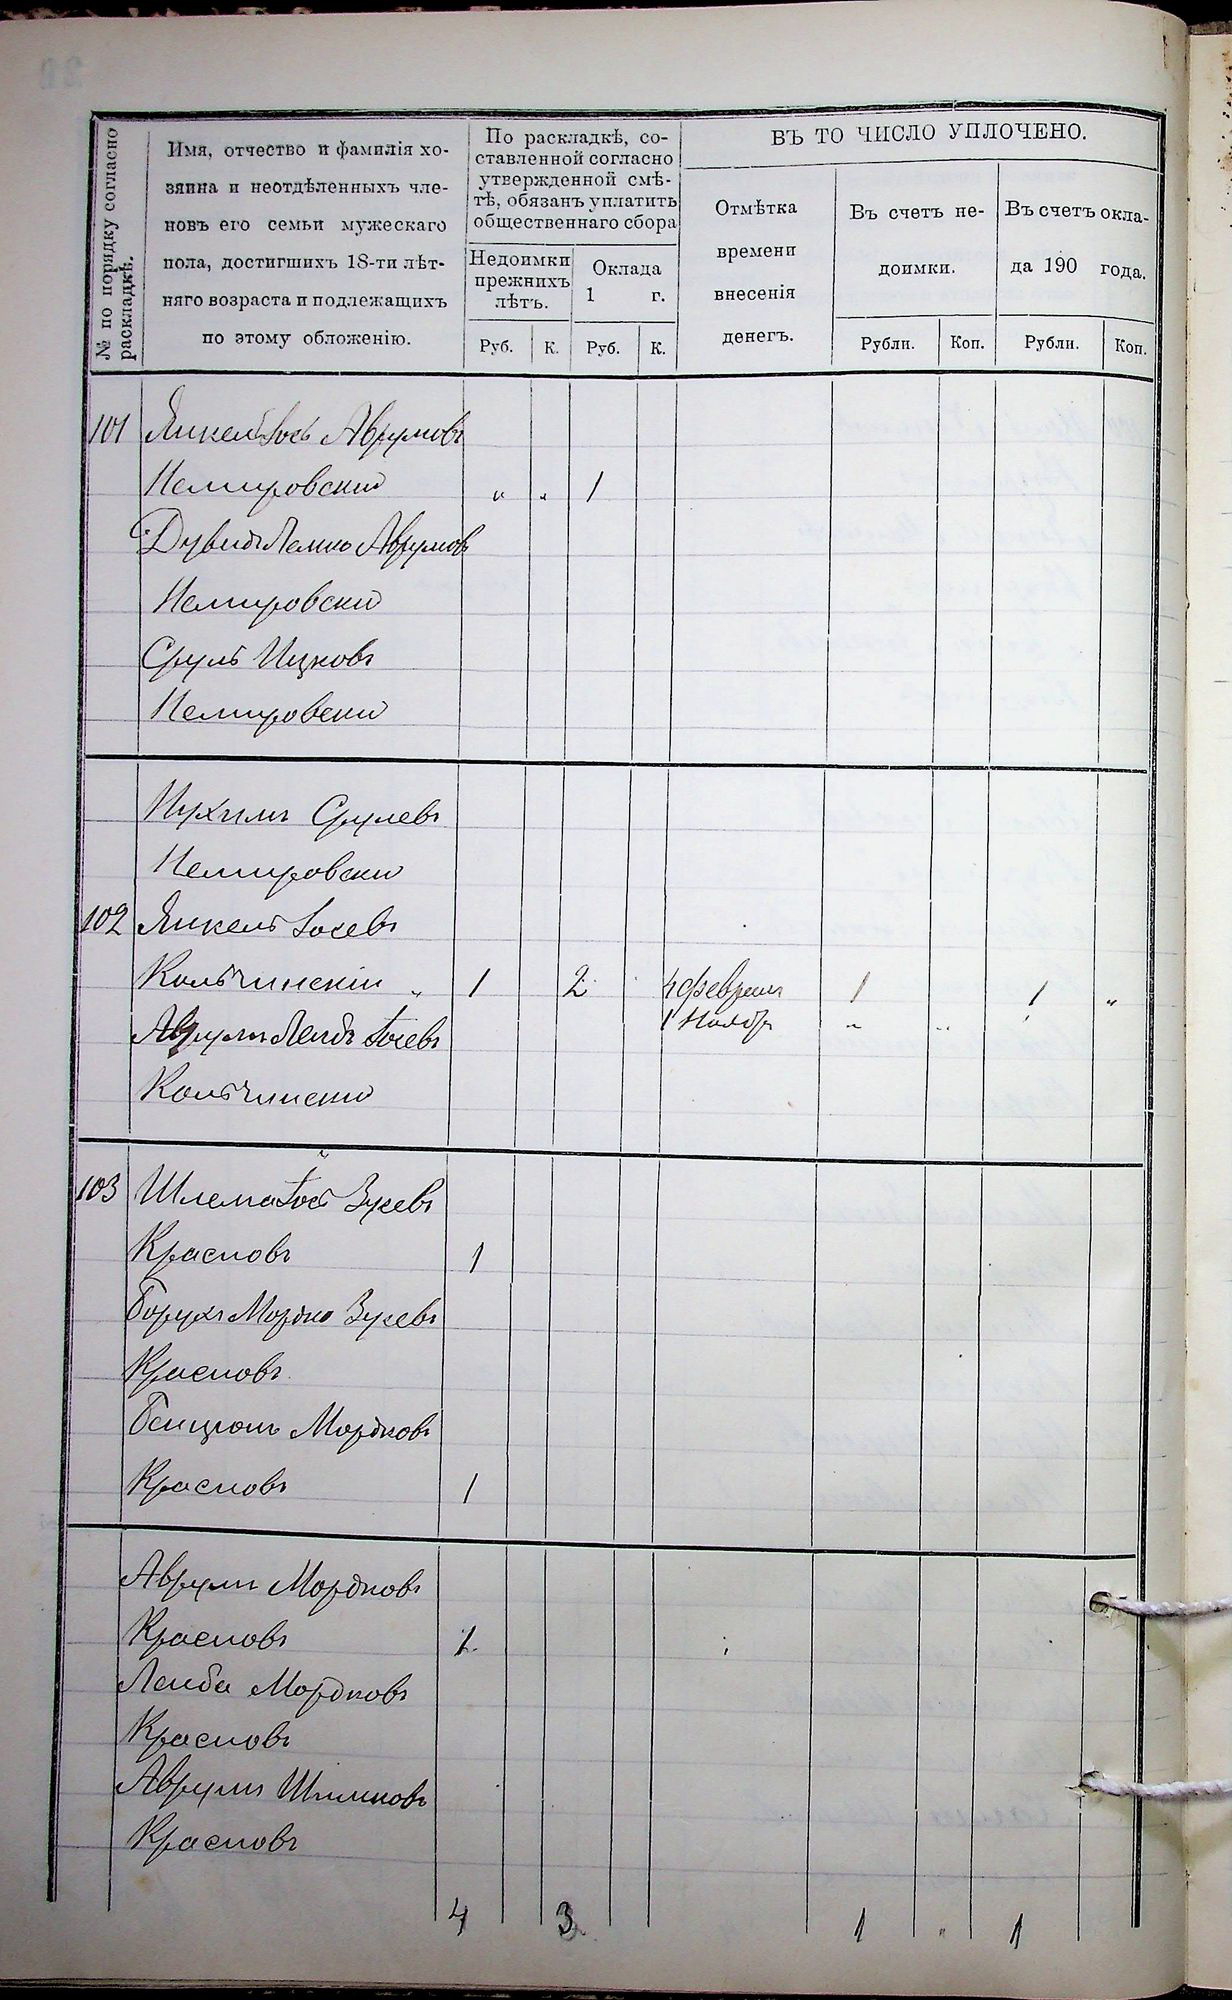 № по порядку согласно раскладкѣ.
Имя, отчество и фамилія хо-
зяина и неотдѣленныхъ чле-
новъ его семьи мужескаго
пола, достигшихъ 18-ти лѣт-
няго возраста и подлежащихъ
по этому обложенію.
По раскладкѣ, со-
ставленной согласно
утвержденной смѣ-
тѣ, обязанъ уплатить
общественнаго сбора
Недоимки
прежнихъ
лѣтъ.
Руб. К.
Оклада
1 г.
Руб. К.
ВЪ ТО ЧИСЛО УПЛОЧЕНО.
Отмѣтка
времени
внесенія
денегъ.
Въ счетъ не-
доимки.
Рубли. Коп.
Въ счетъ окла-
да 190 года.
Рубли. Коп.
101 Янкель Іось Аврумовъ
Немировский " " 1
Дувидъ Лемко Аврумовъ
Немировски
Сруль Ицковъ
Немировски
Нухимъ Срулевъ
Немировски
102 Янкель Іосевъ
Кольчинскіи " 1 2 4 февраля 1 1 "
1 Ноябр " "
Аврумъ Лейбъ Іосевъ
Кольчински
103 Шлема Іось Зусевъ
Красновъ 1
Борухъ Мордко Зусевъ
Красновъ
Бенционъ Мордковъ
Красновъ 1
Аврумъ Мордковъ
Красновъ 1
Леиба Мордковъ
Красновъ
Аврумъ Шлиомовъ
Красновъ
4 3 1 " 1